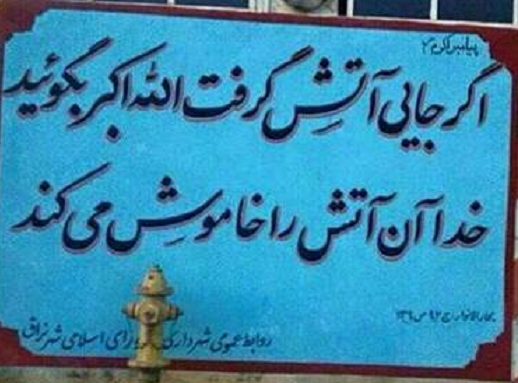 پیامبر اکرم
اگر جایی آتش گرفت الله اکبر بگوئید
خدا آن آتش را خاموش می کند
بحارالانوار ج ۹۲ ص
روابط عمومی شهرداری رای اسلامی شهر نراق